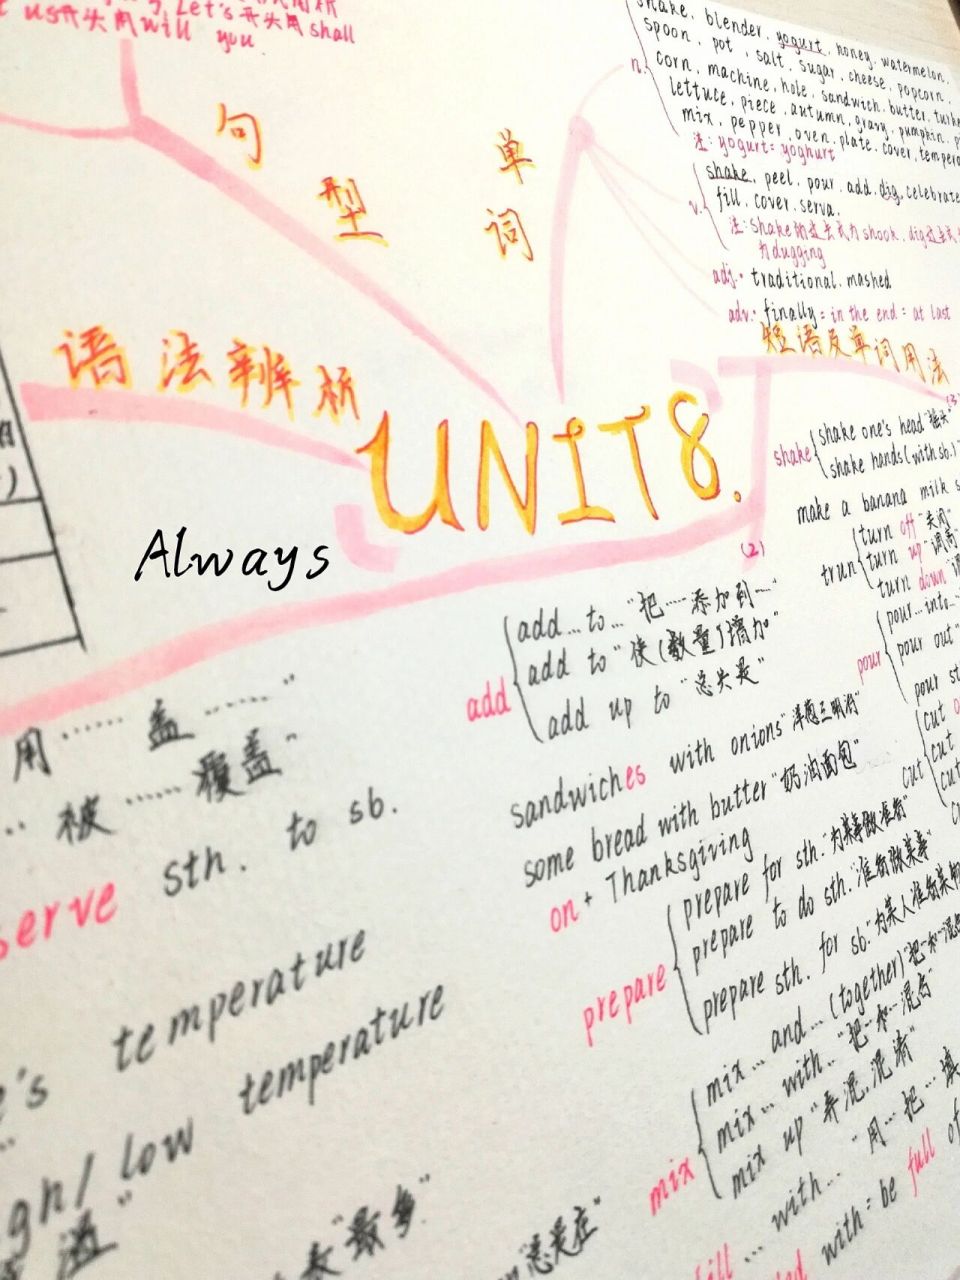 us开头用will you.
Let's开头用shall
句型
单词
n.
shake. blender. yogurt. honey. watermelon.
spoon. pot. salt. sugar. cheese. popcorn.
corn. machine. hole. sandwich. butter.
lettuce. piece. autumn. gravy. pumpkin.
mix. pepper. oven. plate. cover.
注: yogurt = yoghurt
v.
shake. peel. pour. add. dig. celebrate
fill. cover. serva.
注: shake的过去式为shook. dig
为dugging
adj. traditional. mashed
adv. finally = in the end = at last
语法辨析
UNIT8.
Always
短语及单词用法
(3)
shake
shake one's head "摇头"
shake hands (with sb.)
make a banana milk
trun
turn off "关闭"
turn up "调高
turn down
(2)
pour
pour...into...
pour out"
pour
cut
cut
cut
cut
add
add...to... "把……添加到…"
add to "使(数量)增加"
add up to "总共是"
sandwiches with onions "洋葱三明治"
some bread with butter "奶油面包"
on + Thanksgiving
prepare
prepare for sth. "为某事做准备"
prepare to do sth. "准备做某事"
prepare sth. for sb. "为某人准备某物
mix
mix... and... (together) "把…和…混合
mix... with... "把…和…混合"
mix up "弄混,混淆"
... with... "用…把…
with = be full of
用……盖……"
被……覆盖"
serve sth. to sb.
temperature
low temperature
"最多"
"总是在"